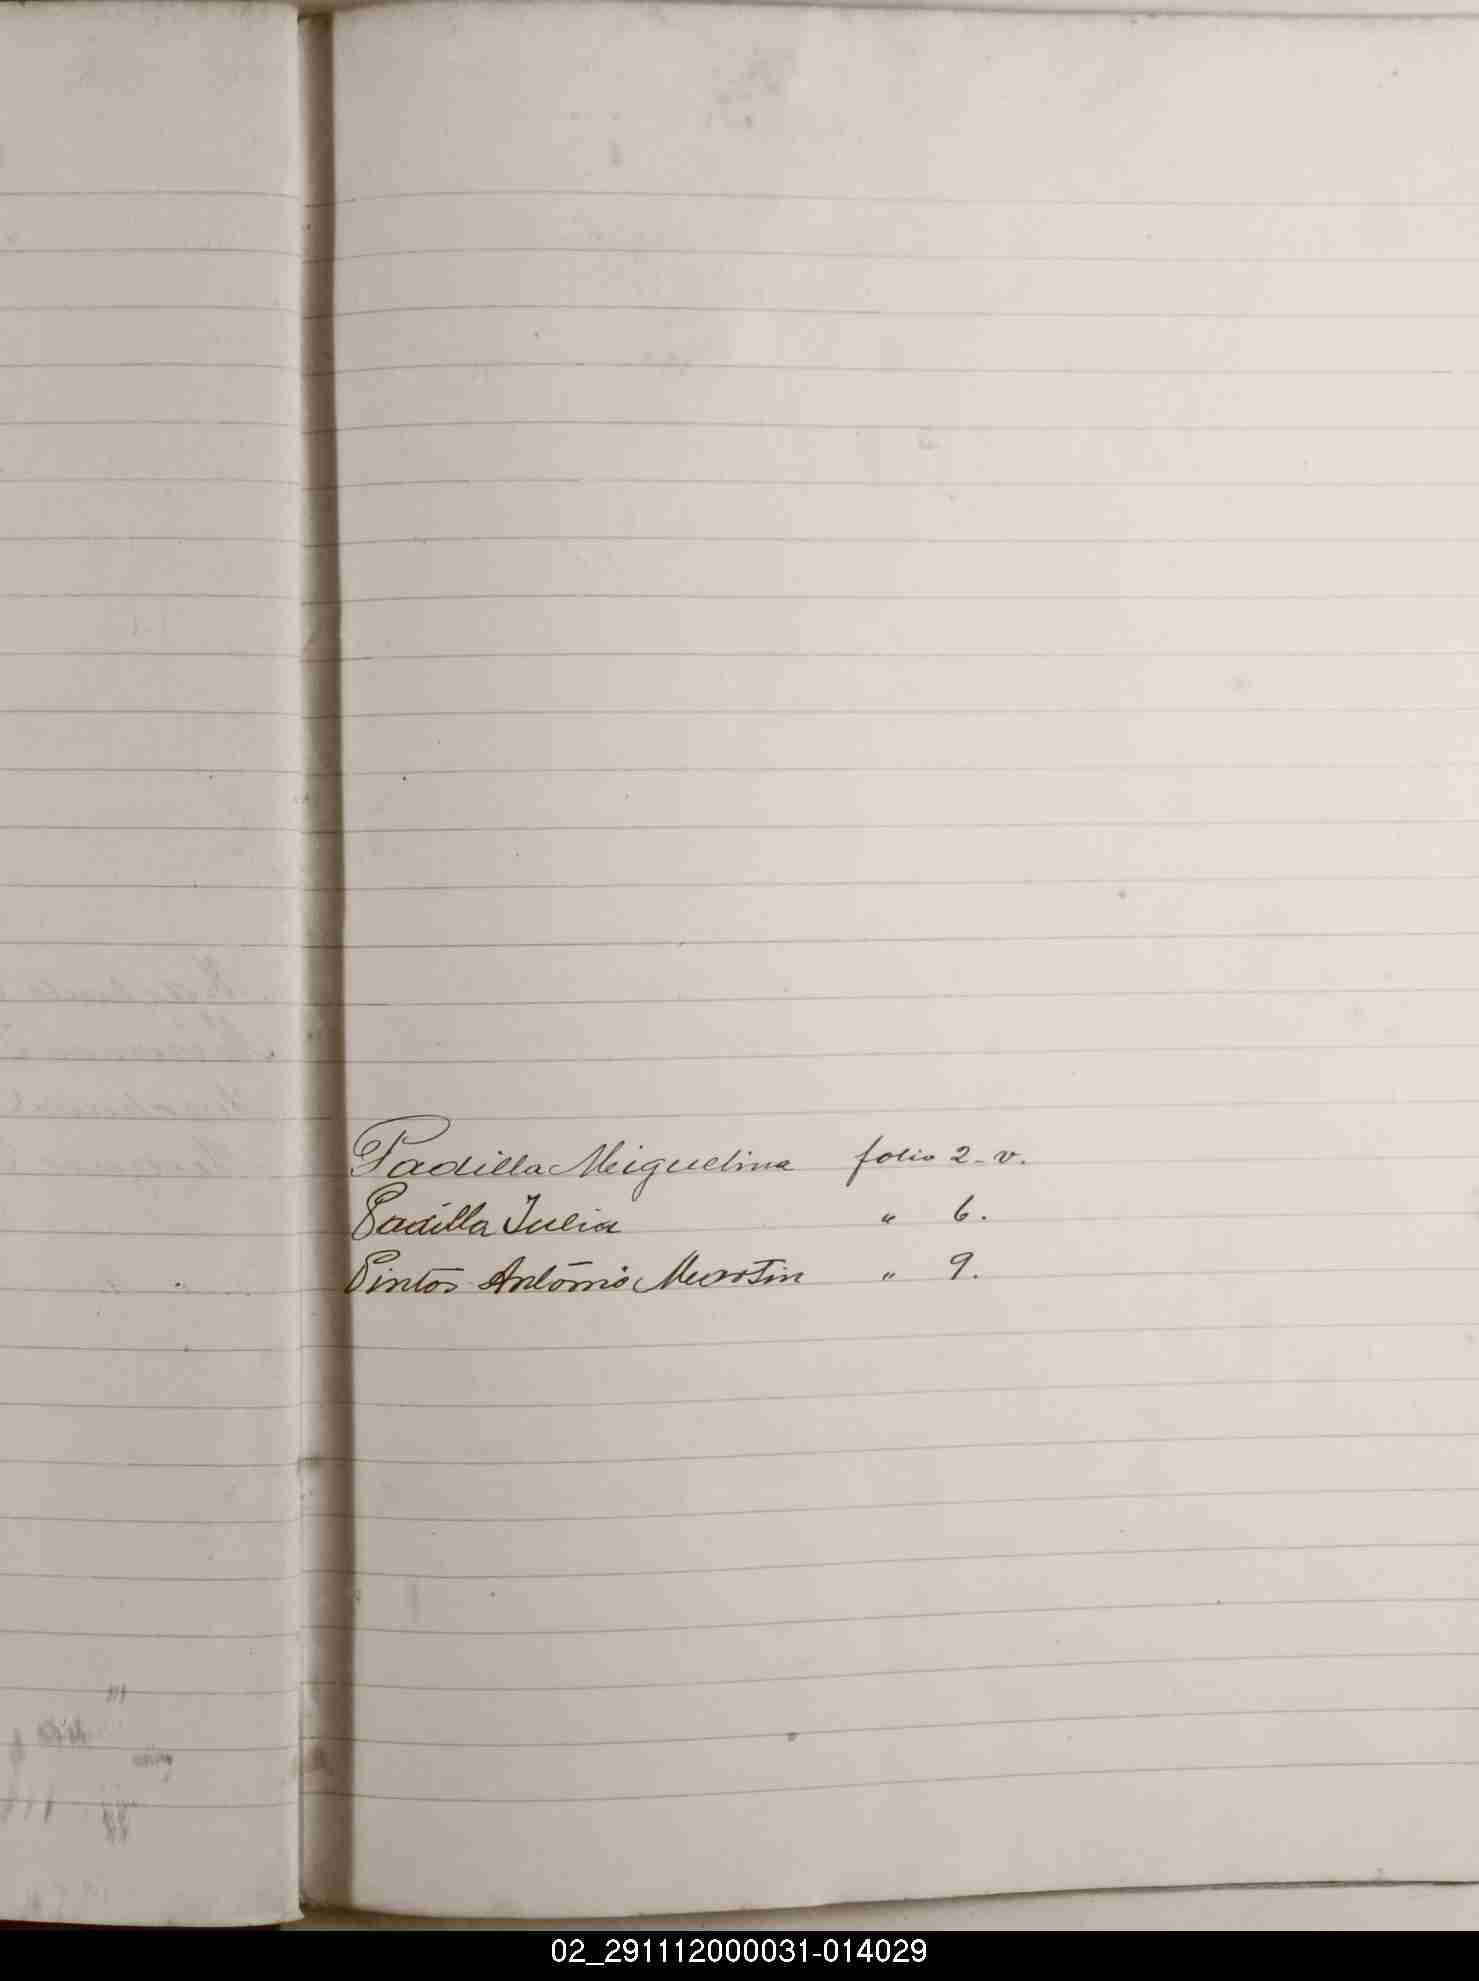 Padilla Miguelina folio 2-v.
Padilla Julia " 6.
Pintos Antonio Martin " 9.
02_291112000031-014029